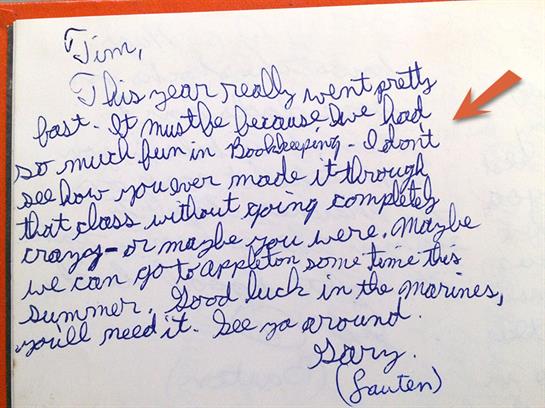 Tim,
This year really went pretty
fast. It must be because we had
so much fun in Bookkeeping - I don't
see how you ever made it through
that class without going completely
crazy - or maybe you were. Maybe
we can go to appleton some time this
summer. Good luck in the marines,
you'll need it. See ya around.
Gary.
(Sauten)